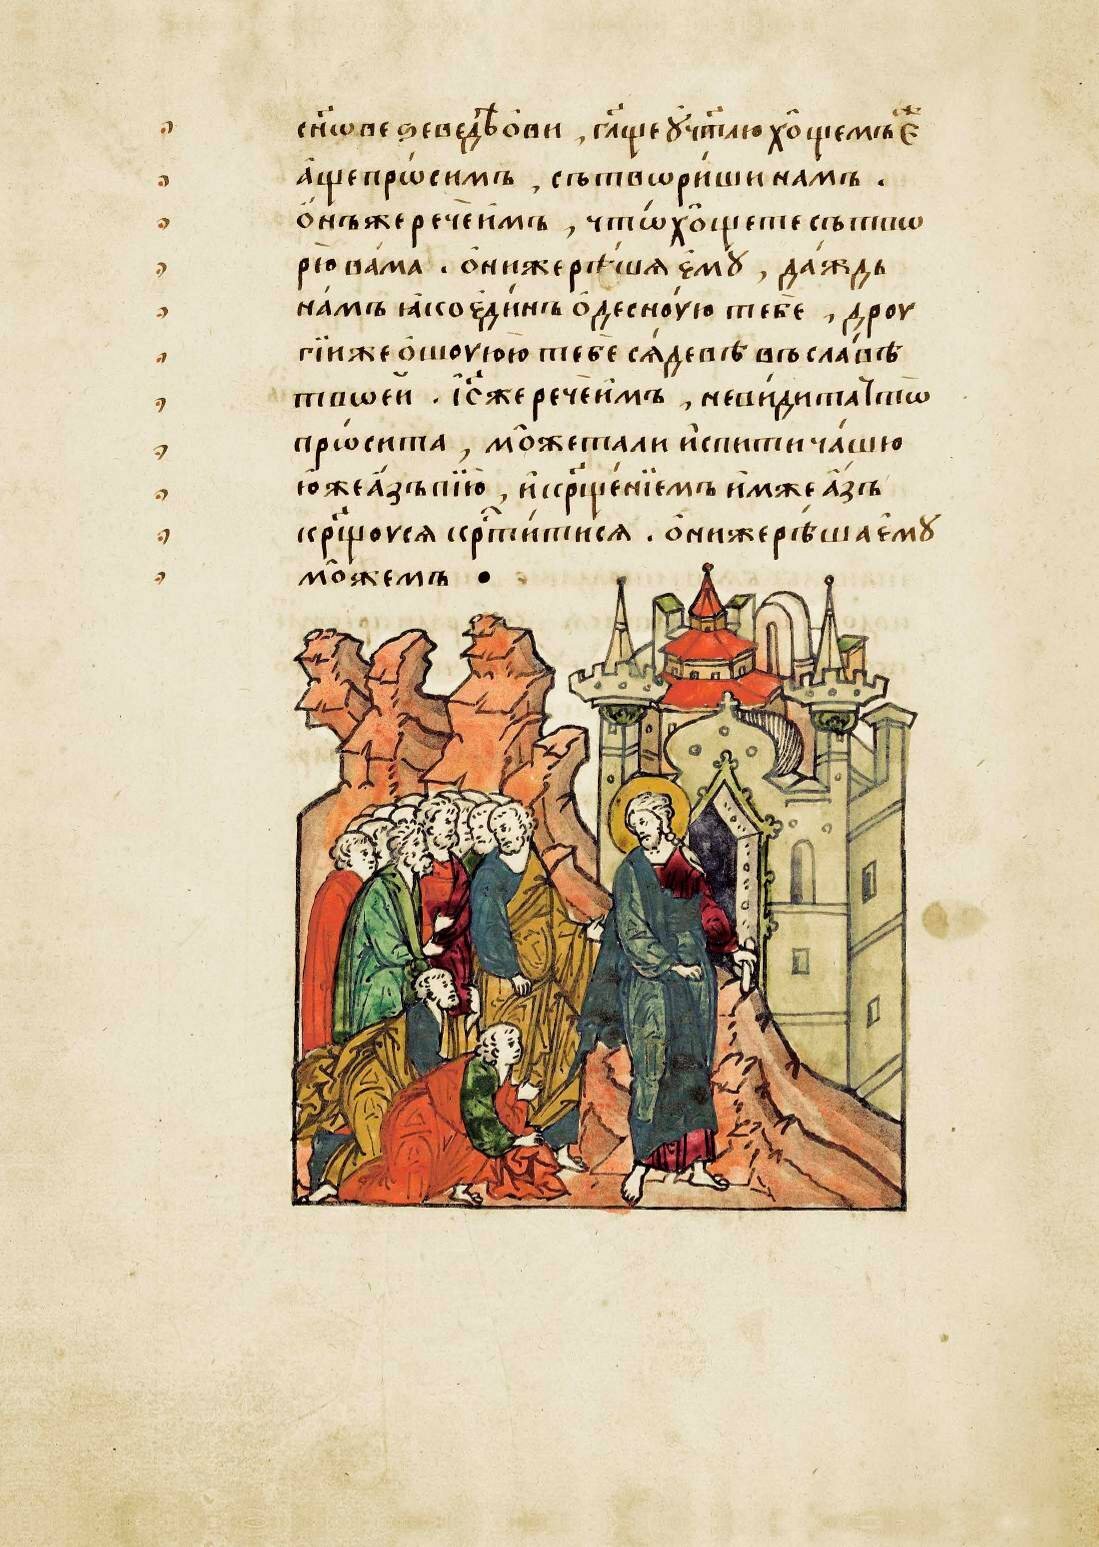 сн҃ѡве зеведеѡви , гл҃ще ᲂучт҃лю хо́щемъ є҆
а҆́ще прѡ́симъ , сътвѡри́ши на́мъ .
ѻ҆́нъже речѐ и҆̀мъ , чтѡ̀ хо́щете сътвѡ
рю̀ ва́ма . ѻ҆ниже рѣ́шѧ є҆мꙋ̀ , да́ждь
на́мъ ꙗ҆́ко є҆ди́нъ ѻ҆десноую тебѐ , дроу
гі́иже ѻ҆шоуюю̀ тебѐ сѧ́девѣ въ сла́вѣ
твѡе́й . і҆с҃же речѐ и҆̀мъ , не ви́дита чтѡ̀
прѡ́сита , мо́жетали и҆спи́ти ча́шю
ю҆́же а҆́зъ пїю̀ , и҆ кр҃ще́нїемъ и҆́мже а҆́зъ
кр҃щоусѧ кр҃ти́тисѧ . ѻ҆ниже рѣ́ша є҆мꙋ̀
мо́жемъ .